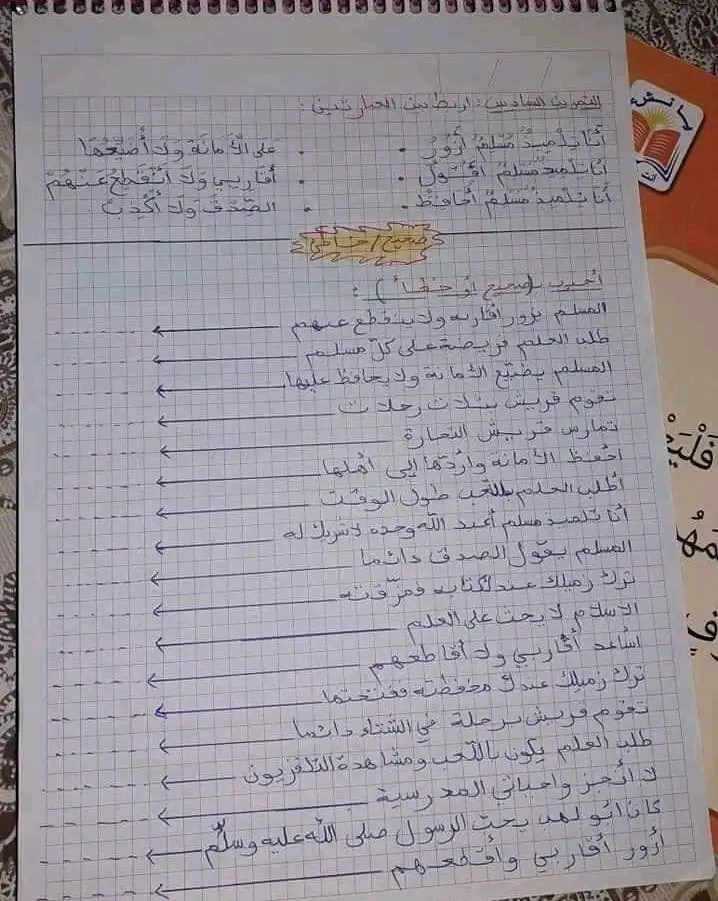 التمرين السادس: اربط بين العبارتين:
أَنَا تِلْمِيذٌ مُسْلِمٌ أَزُورُ • • عَلَى الْأَمَانَةِ وَلَا أُضَيِّعُهَا
أَنَا تِلْمِيذٌ مُسْلِمٌ أَقُولُ • • أَقَارِبِي وَلَا أَنْقَطِعُ عَنْهُمْ
أَنَا تِلْمِيذٌ مُسْلِمٌ أُحَافِظُ • • الصِّدْقَ وَلَا أَكْذِبُ
صحيح/خاطئ
أجيب بـ (صحيح أو خطأ):
المسلم يزور أقاربه ولا ينقطع عنهم
طلب العلم فريضة على كلّ مسلم
المسلم يضيّع الأمانة ولا يحافظ عليها
تقوم قريش بثلاث رحلات
تمارس قريش التجارة
أحفظ الأمانة وأردّها إلى أهلها
أطلب العلم باللعب طول الوقت
أنا تلميذ مسلم أعبد الله وحده لا شريك له
المسلم يقول الصدق دائما
ترك زميلك عندك كتابه فمزّقته
الاسلام لا يحث على العلم
أساعد أقاربي ولا أقاطعهم
ترك زميلك عندك محفظته ففتحتها
تقوم قريش برحلة في الشتاء دائما
طلب العلم يكون باللعب ومشاهدة التلفزيون
لا أنجز واجباتي المدرسية
كان أبو لهب يحب الرسول صلى الله عليه وسلّم
أزور أقاربي وأقطعهم